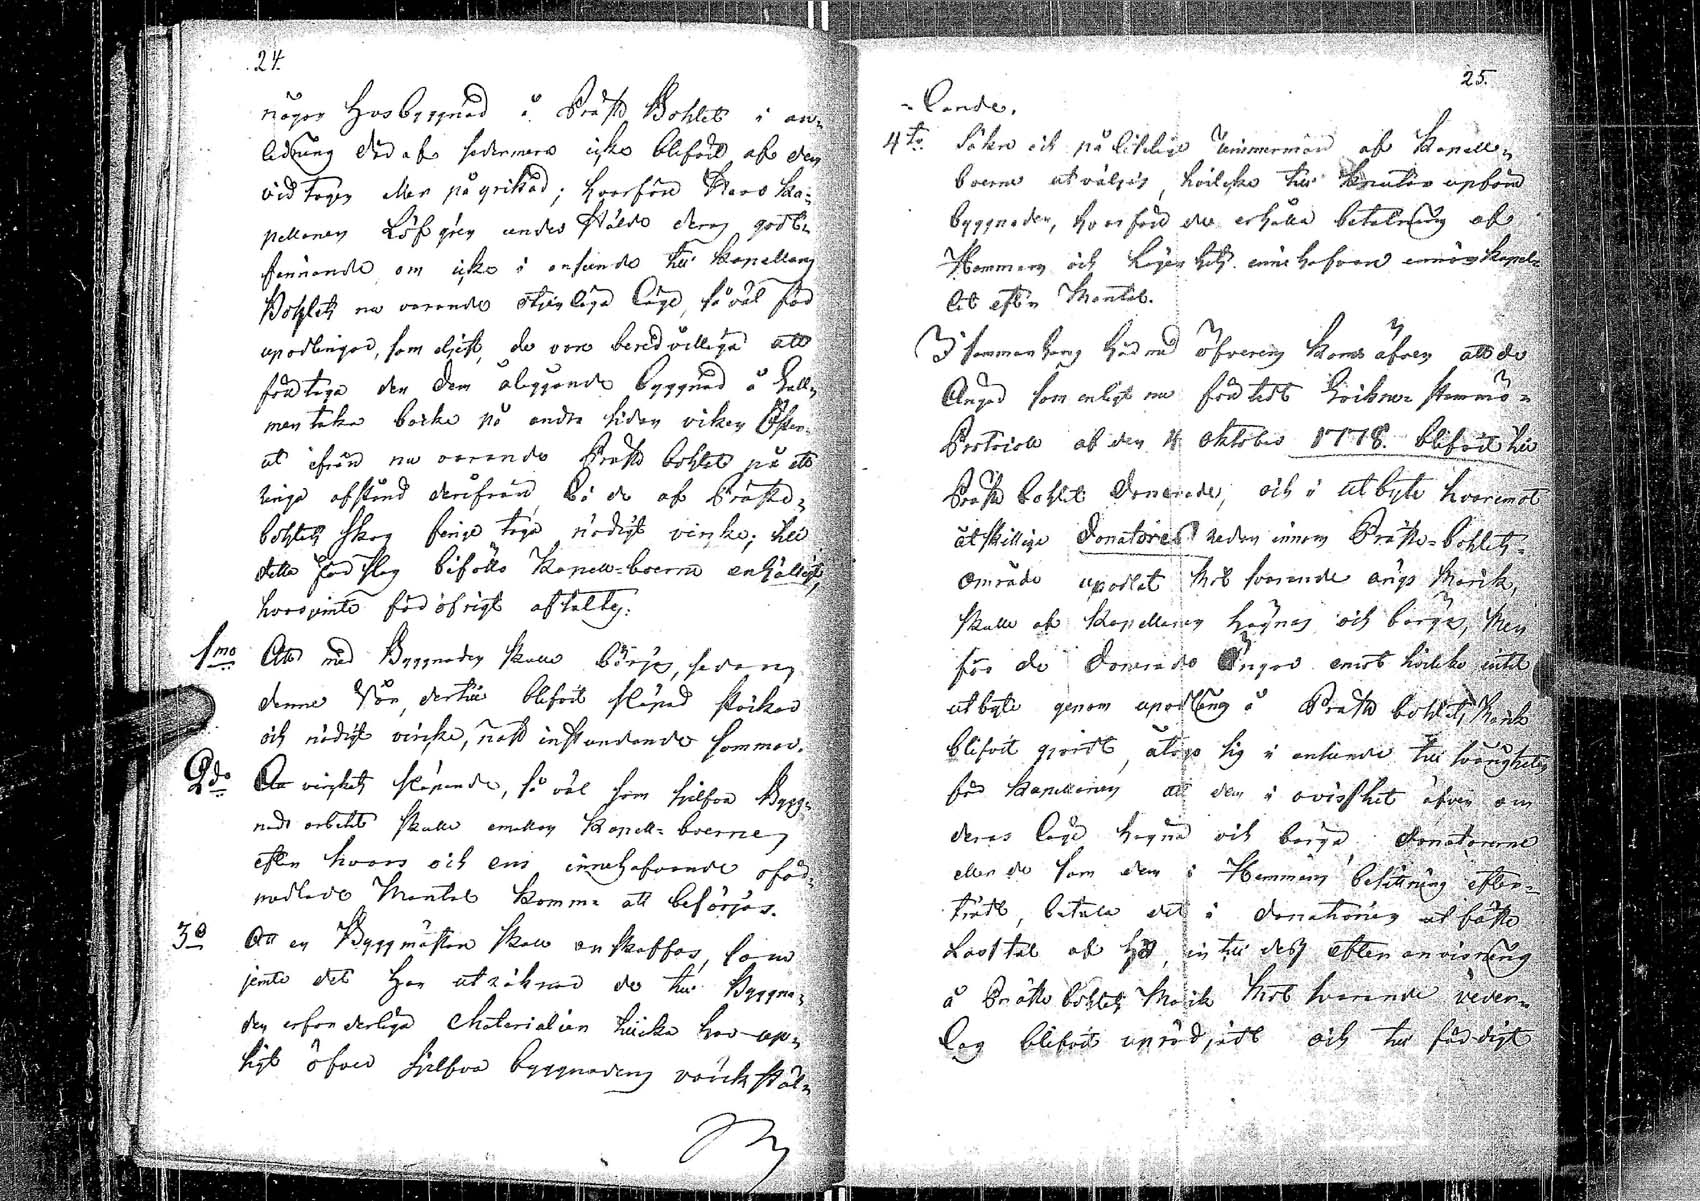 24.
någon Husbyggnad å Präste Bohlet i an-
ledning där af sedermera icke blifvit af den
vidtagen eller påyrkad; hvarföre Herr Ka-
pellanen Löfgren under Häradets godt-
finnande om icke i anseende till Kapellans
Bohlets nu varande otjenliga läge, så väl för
upodlingar, som eljest, de voro beredvillige att
företaga den dem åliggande byggnad å
backe på andra sidan viken Öster-
ut ifrån nu varande Präste bohlet på ett
ringa afstånd derifrån å de af Präste-
bohlets skog finge taga nödigt virke; till
detta förslag biföllo Kapell-boerne enhälligt,
hvarjemte för öfrigt aftaltes:
1mo Att med Byggnaden skulle börjas, sedan
denne Vår, dertill blifvit släpad stockar
och nödigt virke, näst instundande sommar.
2do At virkets släpande, så väl som sjelfva Bygg-
nads arbetet skulle emellan Kapell-boerne
efter hvars och ens innehafvande oför-
medlade Mantal komma att besörjas.
3o Att en Byggmästare skall anskaffas, som
jemte det han uträknar de till Byggna-
den erforderliga Materialier tillika har up-
sigt öfver sjelfva byggnadens värkstäl-
25.
-lande.
4to Säkre och pålitelige Timmermän af Kapell-
boerne utväljes, hvilcka till knutar upföra
byggnaden, hvarföre de erhålla betalning af
Hemmans och Lägenhets innehafvare inom Kapel-
let efter Mantal.
I sammanhang härmed öfverens kom äfven att de
Ängar som enligt nu företedt Sockne-stämmo-
Protocoll af den 4 oktober 1778. blifvit till
Präste bohlet donerade, och i utbyte hvaremot
åtskillige Donatores redan innom Präste-bohlets-
område upodlat motsvarande ängs Marck,
skulle af Kapellanen hägnas och bärgas, Men
för de donerade Ängar emot hvilcka intet
utbyte genom upodling å Präste bohlets Marck
blifvit gjordt, åtogo sig i anseende till svårigheten
för Kapellanen att den i ovisshet äfven om
deras läge hägna och bärga donatorerne
eller de som dem i Hemmans besittning efter-
trädt, betala det i donationen utsatte
Lasstal af Hö, in till dess efter anvisning
å Präste bohlets Marck motsvarande veder-
lag blifvit uprödjadt och till färdigt